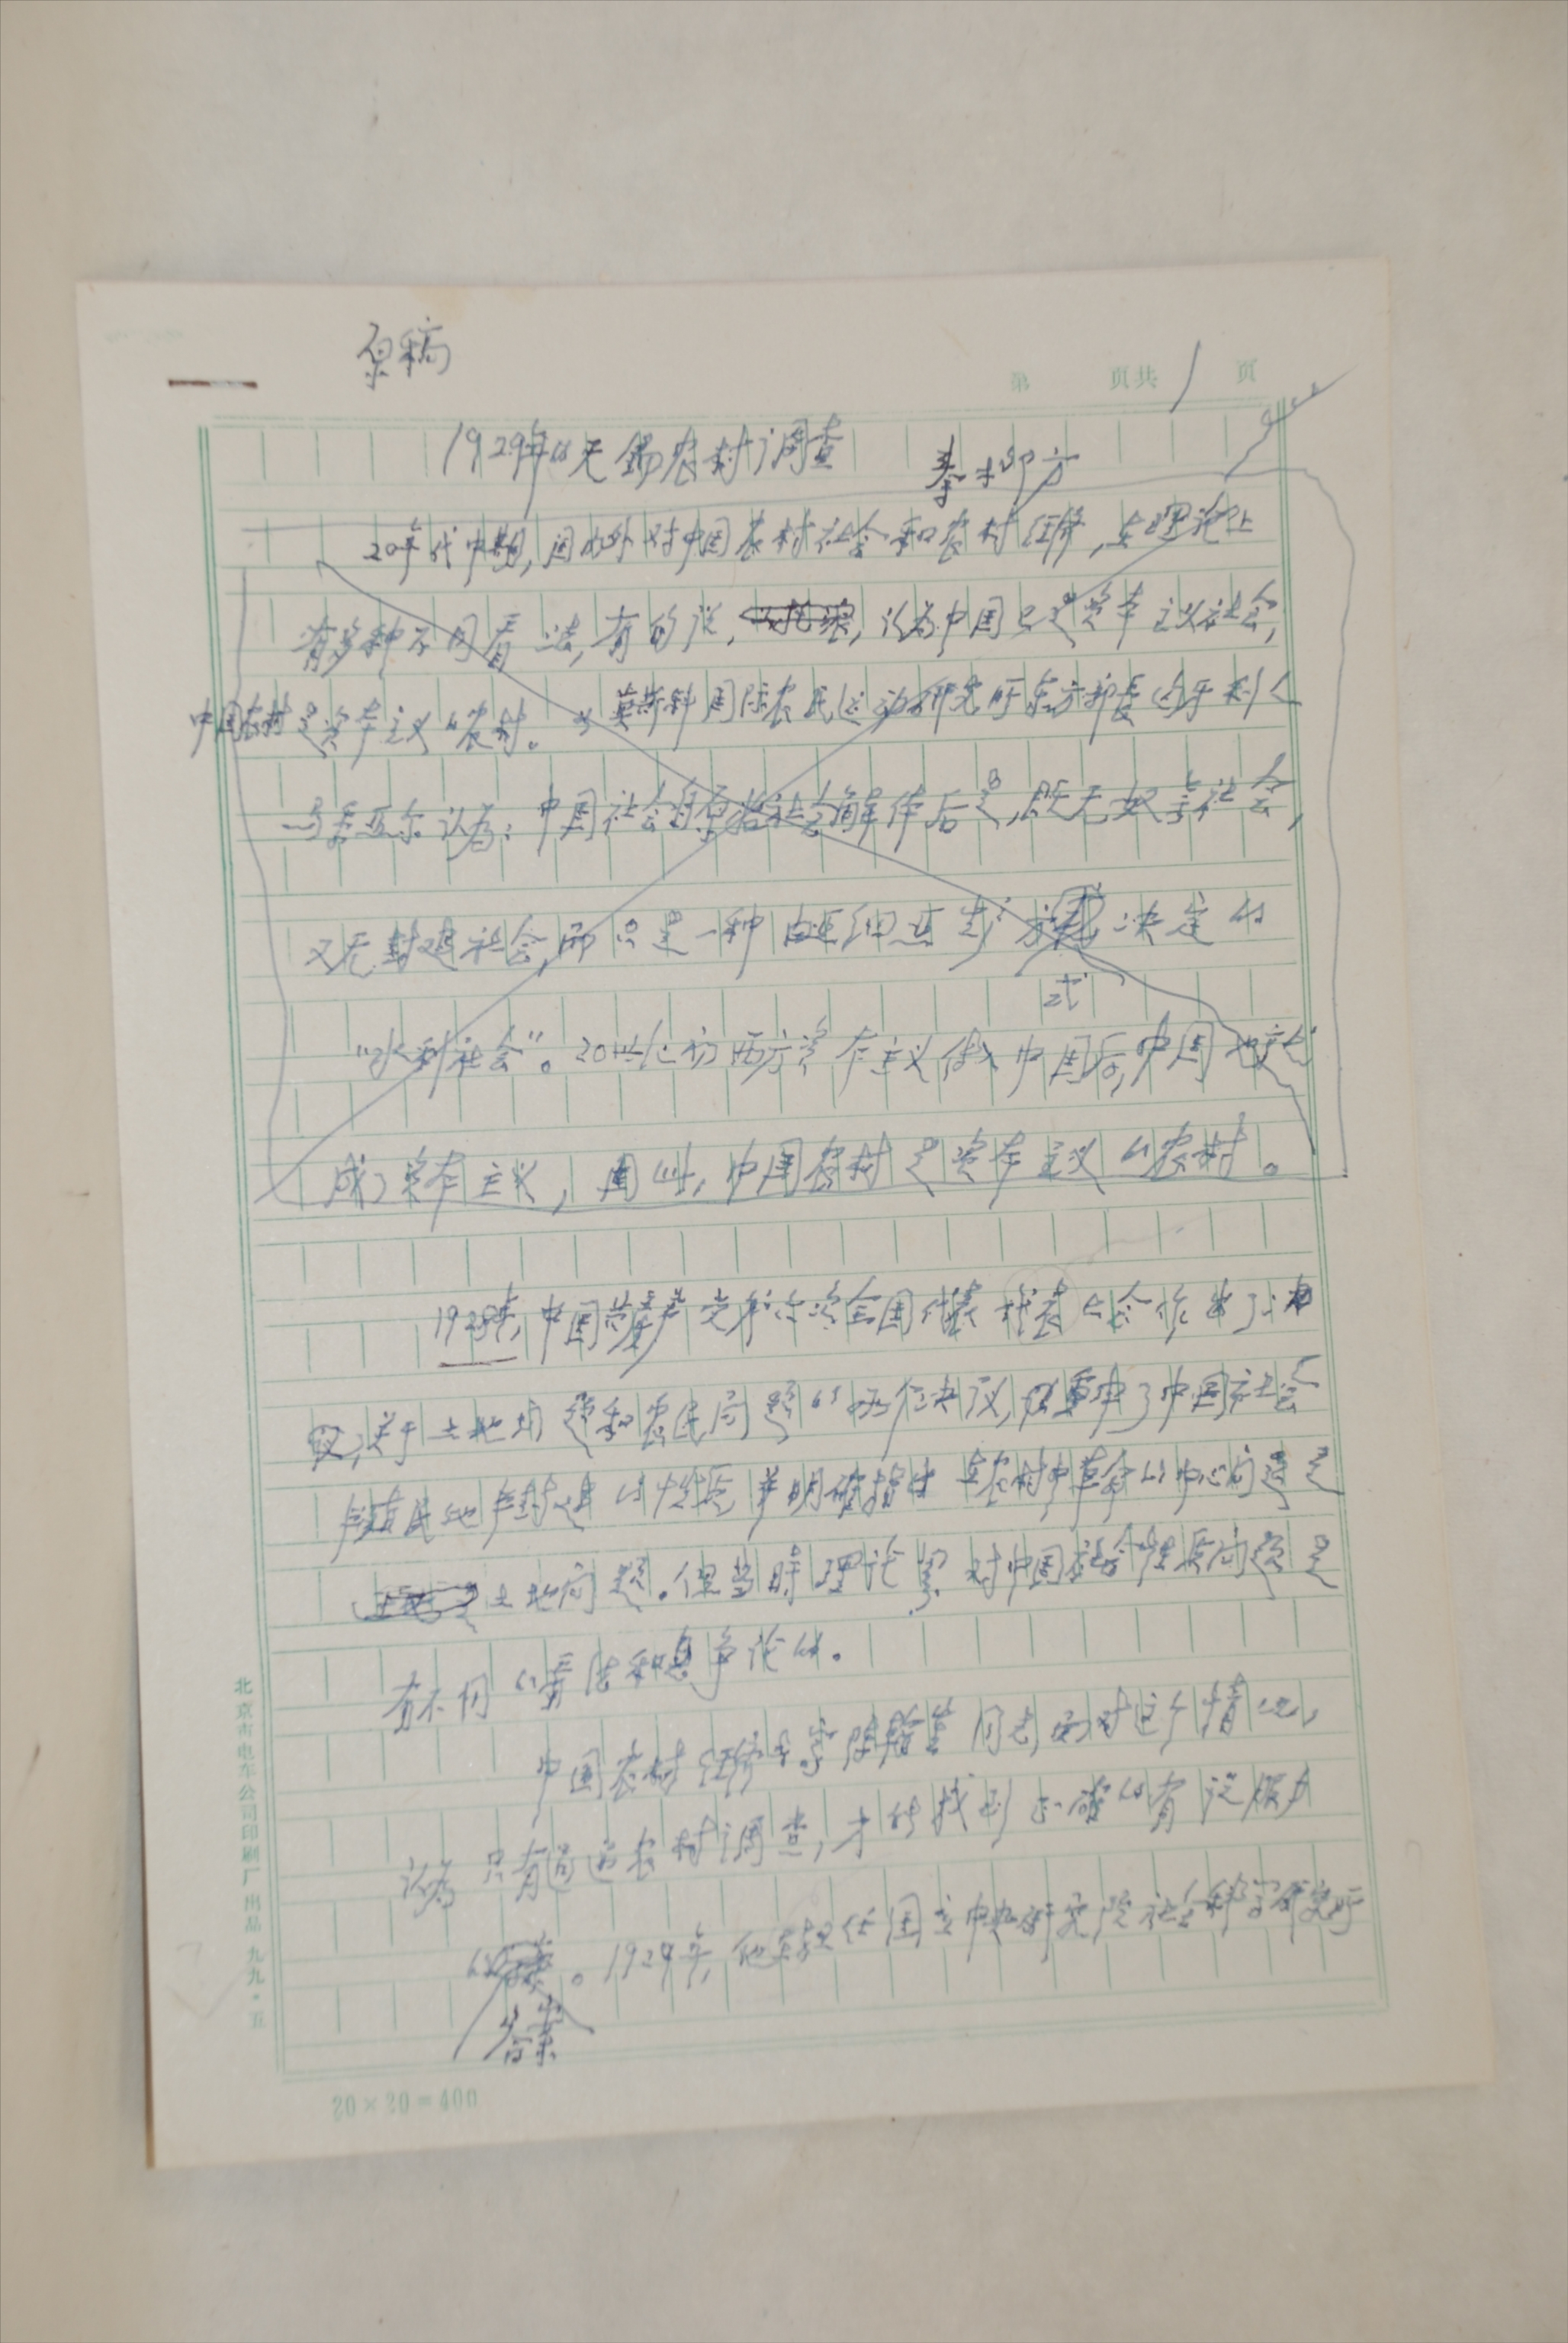 原稿
第 页共 1 页
1929年的无锡农村调查
秦柳方
20年代中期,国内外对中国农村社会和农村经济,在理论上
有多种不同看法,有的说,认为中国已是资本主义社会,
中国农村是资本主义的农村。如莫斯科国际农民运动研究所东方部长匈牙利人
马季亚尔认为:中国社会自原始社会解体后,既无奴隶社会,
又无封建社会,而只是一种由亚细亚生产方式决定的
"水利社会"。20世纪初西方资本主义侵入中国后,中国也变
成了资本主义,因此,中国农村是资本主义的农村。
1928年,中国共产党第六次全国代表代表大会作出了
关于土地问题和农民问题的两个决议,重申了中国社会
半殖民地半封建的性质并明确指出在农村中革命的中心问题是
土地问题。但当时理论界对中国社会性质问题是
有不同的看法和争论的。
中国农村经济学家陈翰笙同志,面对这个情况,
认为只有通过农村调查,才能找到正确的有说服力
的答案。1929年,他在担任国立中央研究院社会科学研究所
北京市电车公司印刷厂出品 九九·五
20×20=400